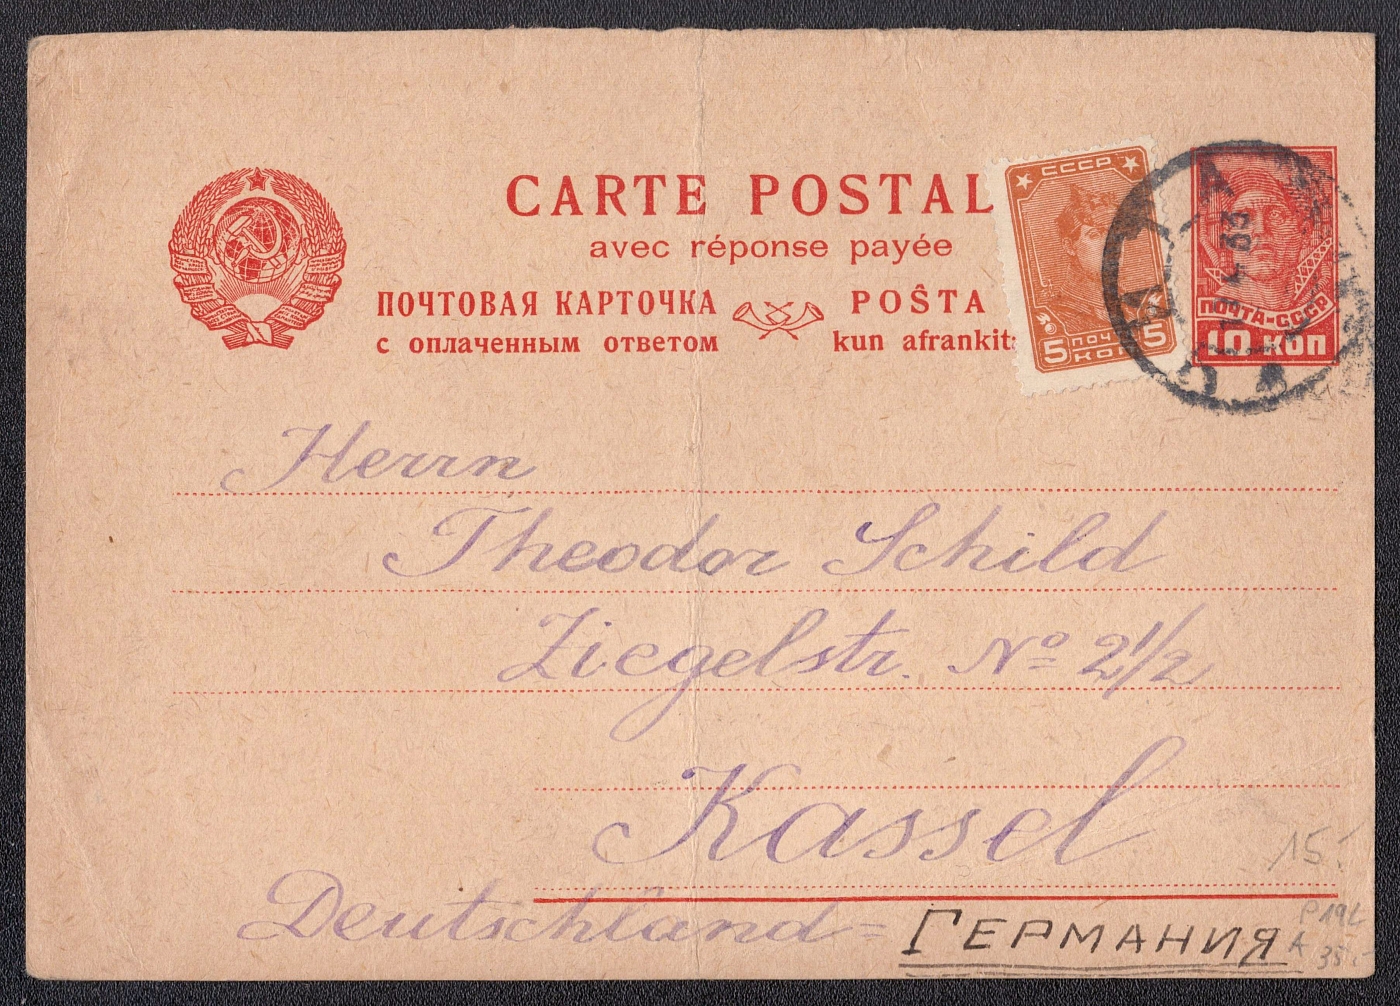 CARTE POSTAL
avec réponse payée
ПОЧТОВАЯ КАРТОЧКА
POŜTA
с оплаченным ответом
kun afrankit
СССР
5 ПОЧ 5
КОП
ПОЧТА-СССР
10 КОП
33
Herrn
Theodor Schild
Ziegelstr. № 2½
Kassel
Deutschland = ГЕРМАНИЯ
15.-
P 19 L
A 35.-